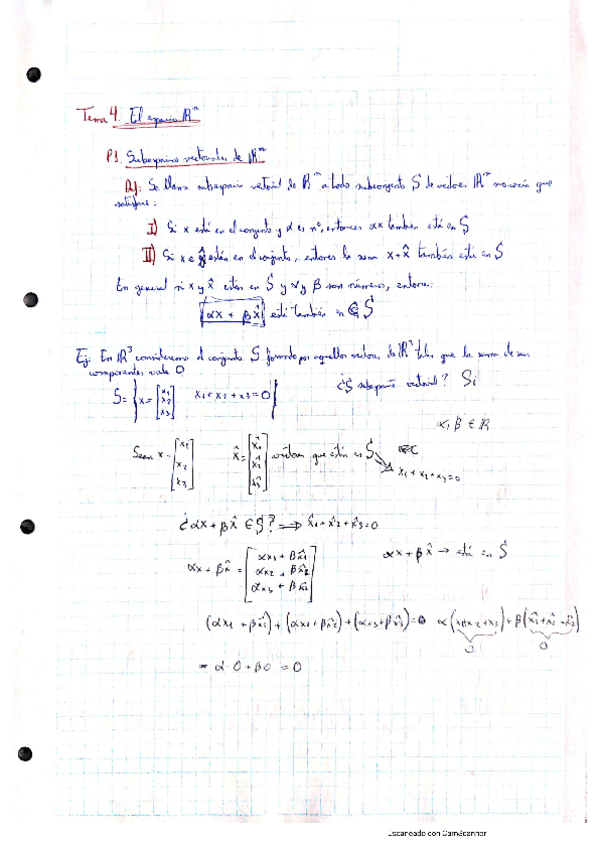 Tema 4. El espacio ℝⁿ
P1. Subespacios vectoriales de ℝⁿ
Df: Se llama subespacio vectorial de ℝⁿ a todo subconjunto S de vectores ℝⁿ no vacío que
satisface:
I) Si x está en el conjunto y α es nº, entonces αx también está en S
II) Si x e x̂ están en el conjunto, entonces la suma x + x̂ también está en S
En general si x y x̂ están en S y α y β son números, entonces:
αx + βx̂ está también en S
Ej. En ℝ³ consideremos el conjunto S formado por aquellos vectores de ℝ³ tales que la suma de sus
componentes vale 0
S = { x = [x1 x2 x3] x1 + x2 + x3 = 0 } ¿S subespacio vectorial? Sí
α, β ∈ ℝ
Sean x = [x1 x2 x3] x̂ = [x̂1 x̂2 x̂3] vectores que están en S
x1 + x2 + x3 = 0
¿αx + βx̂ ∈ S? ⟹ x̂1 + x̂2 + x̂3 = 0
αx + βx̂ = [αx1 + βx̂1 αx2 + βx̂2 αx3 + βx̂3] αx + βx̂ → está en S
(αx1 + βx̂1) + (αx2 + βx̂2) + (αx3 + βx̂3) = α(x1+x2+x3) + β(x̂1+x̂2+x̂3)
0 0
= α·0 + β0 = 0
Escaneado con CamScanner